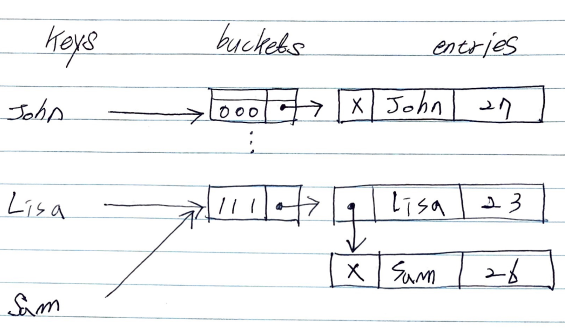 keys buckets entries
John 000 X John 27
Lisa 111 Lisa 23
X Sam 26
Sam